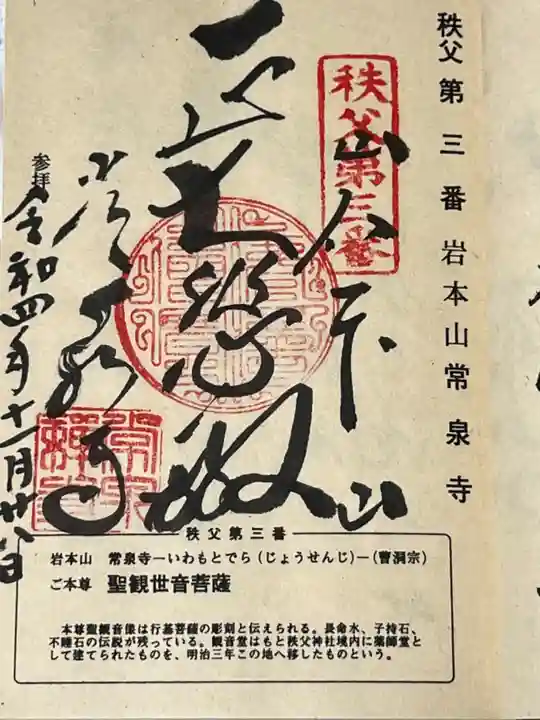 秩父第三番岩本山常泉寺
秩父第三番
岩本山
大悲殿
常泉寺
参拝
令和四年十一月廿八日
秩父第三番
岩本山 常泉寺ーいわもとでら(じょうせんじ)ー(曹洞宗)
ご本尊 聖観世音菩薩
本尊聖観音像は行基菩薩の彫刻と伝えられる。長命水、子持石、
不睡石の伝説が残っている。観音堂はもと秩父神社境内に薬師堂と
して建てられたものを、明治三年この地へ移したものという。